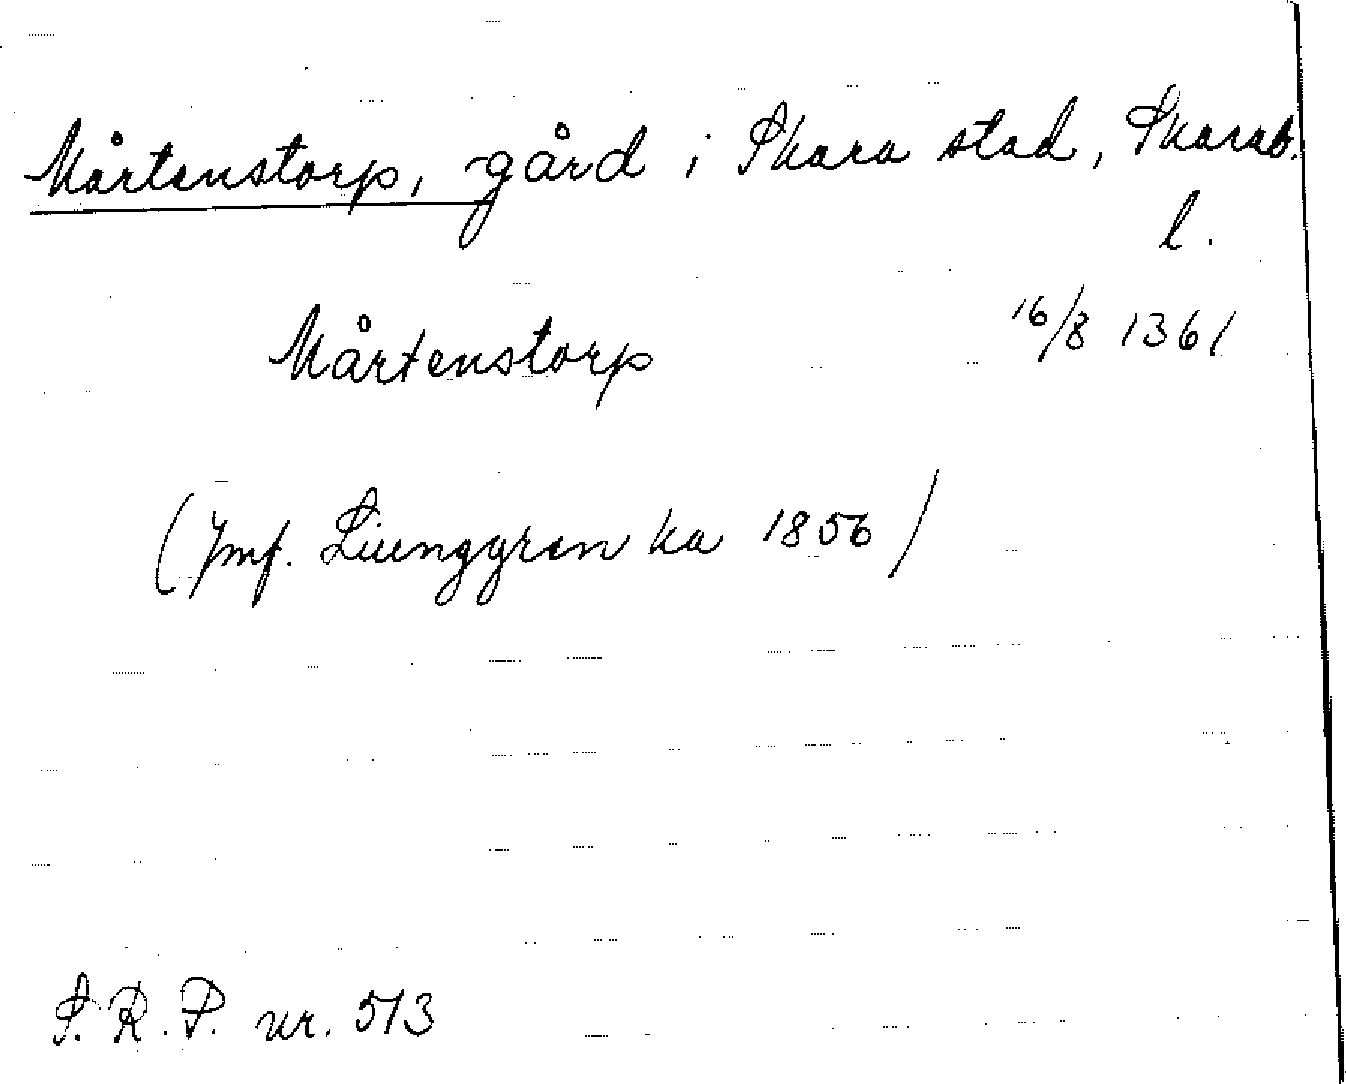 Mårtenstorp, gård i Skara stad, Skarab.
l.
Mårtenstorp 16/8 1361
(Jmf. Liuenggren ka 1856)
S.R.P. nr. 513